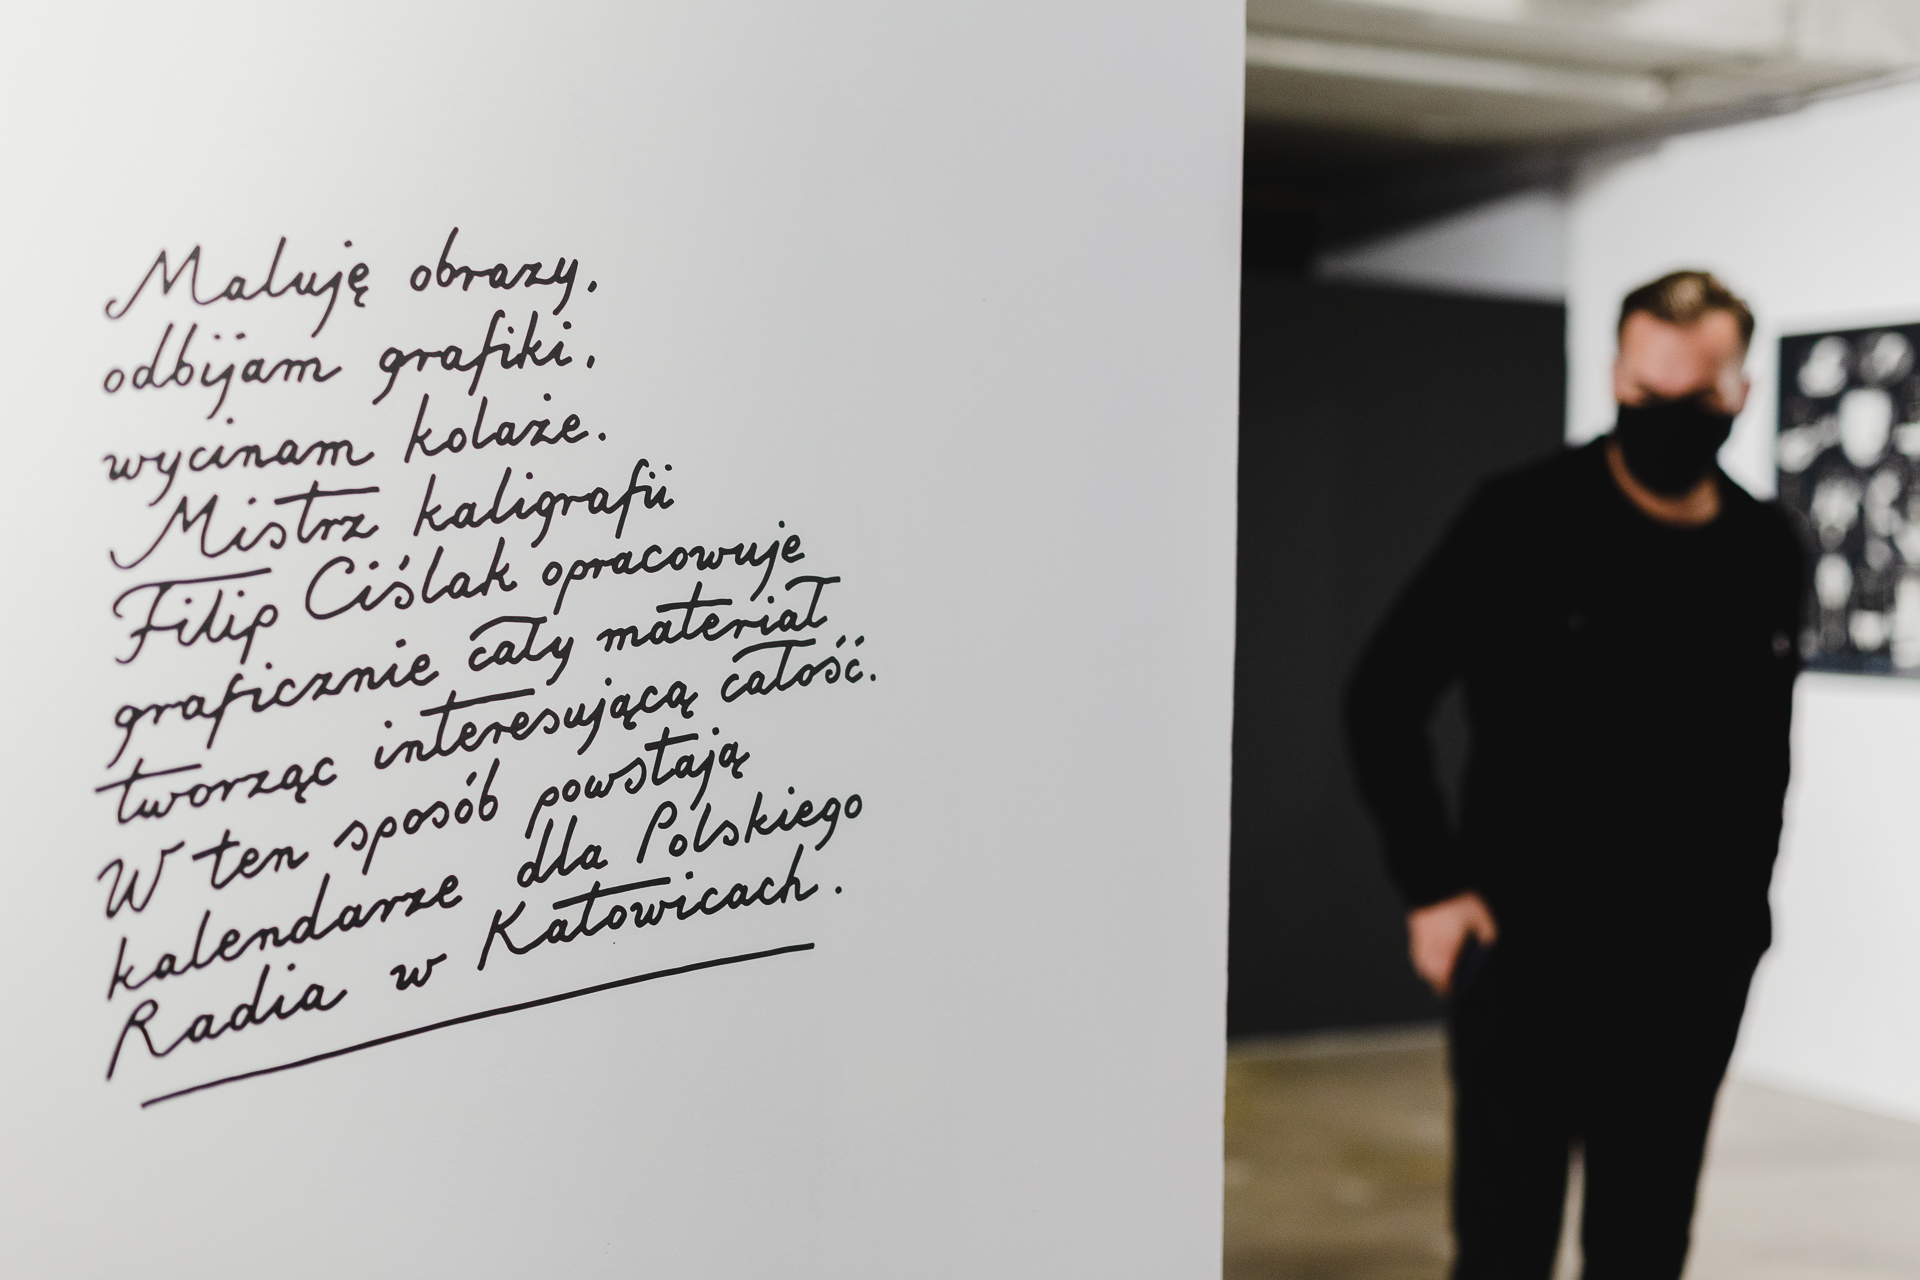 Maluję obrazy.
odbijam grafiki.
wycinam kolaże.
Mistrz kaligrafii
Filip Ciślak opracowuje
graficznie cały materiał
tworząc interesującą całość.
W ten sposób powstają
kalendarze dla Polskiego
Radia w Katowicach.